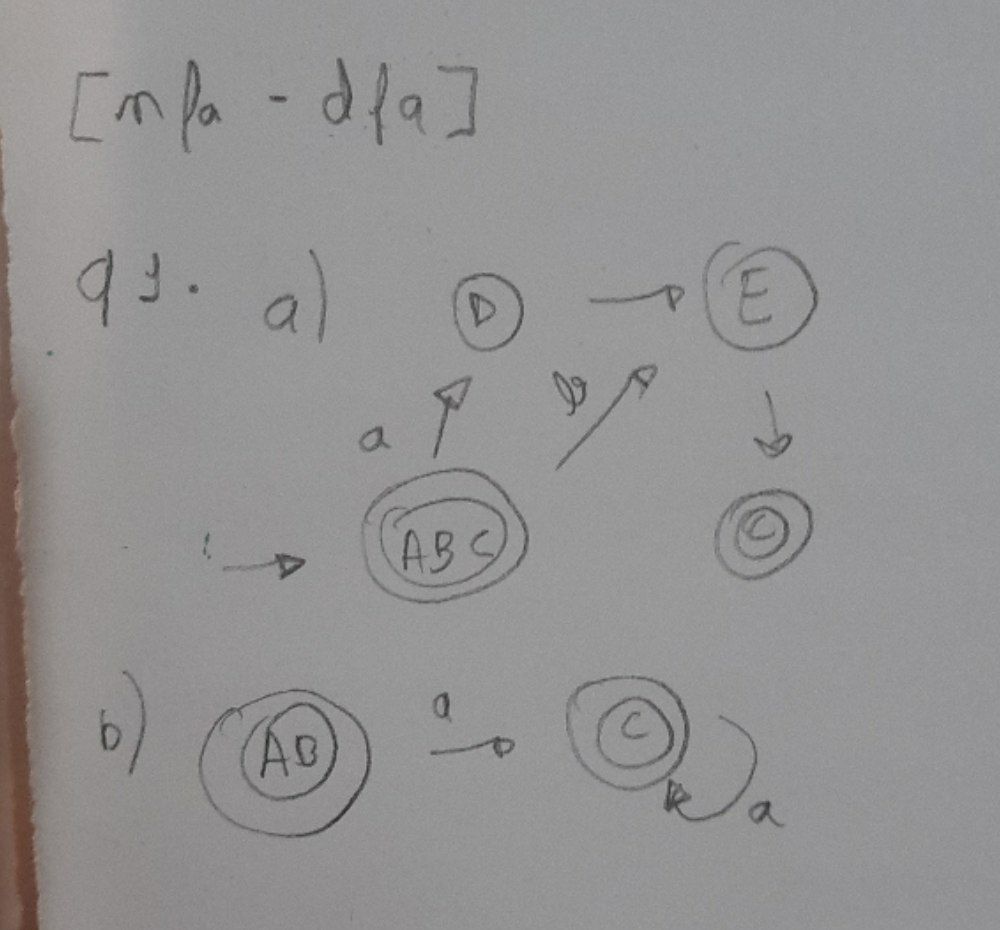 [nfa - dfa]
q1. a) D E
a b
ABC C
b) AB a C a